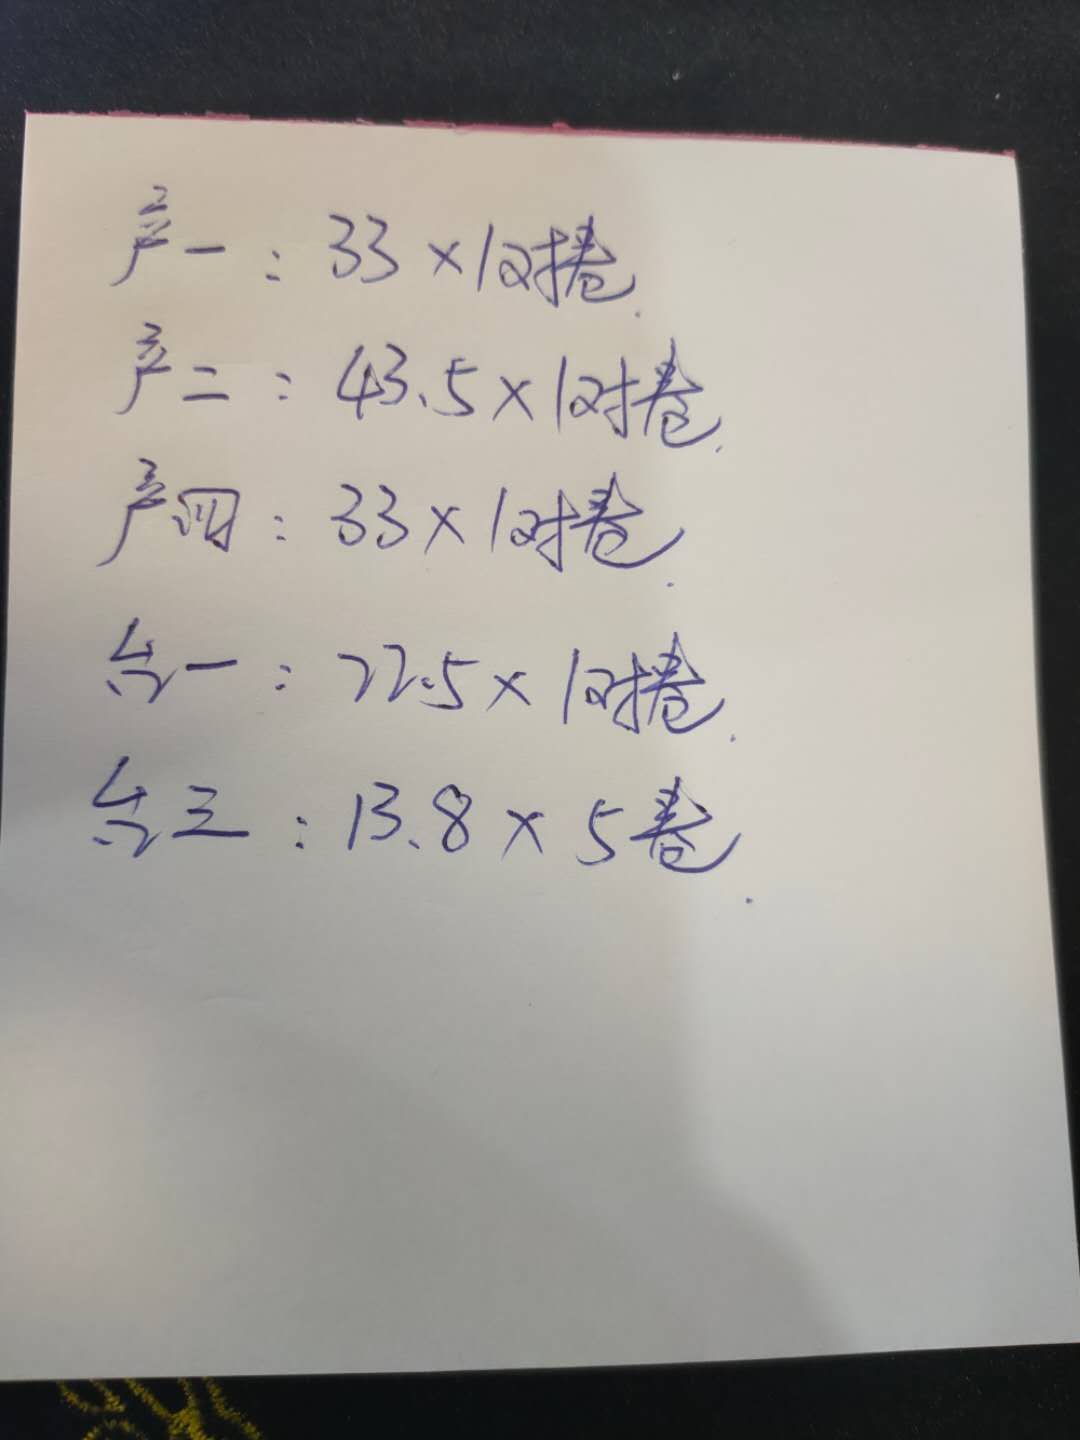 产一：33×1对卷.
产二：43.5×1对卷.
产四：33×1对卷.
台一：22.5×1对卷.
台三：13.8×5卷.